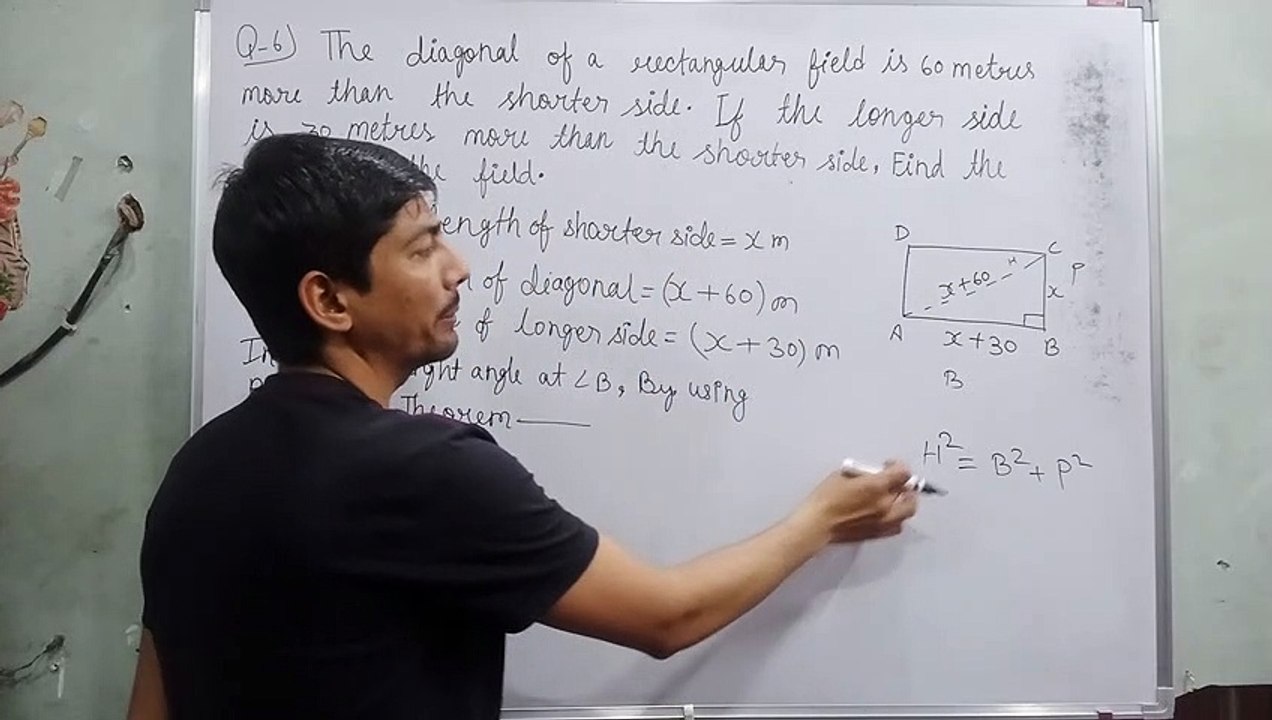 Q-6) The diagonal of a rectangular field is 60 metres
more than the shorter side. If the longer side
is 30 metres more than the shorter side, Find the
the field.
ength of shorter side = x m
of diagonal = (x + 60) m
of longer side = (x + 30) m
In ght angle at ∠B, By using
Theorem ——
D
C
H
P
x + 60
x
A
x + 30
B
B
H² = B² + P²